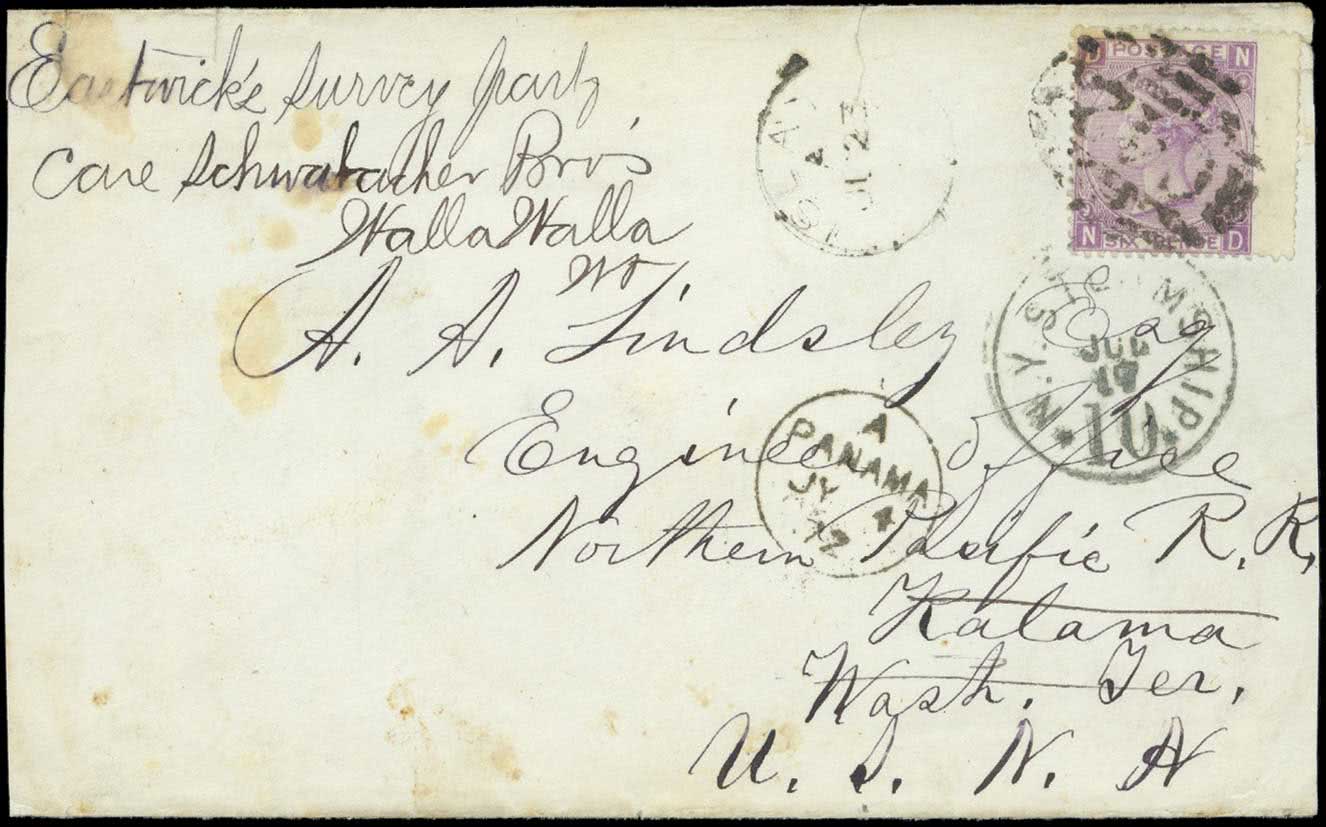 Eastwick's survey party
Care Schwabacher Bro's
Walla Walla
WT
A. A. Lindsley Esq
Engineer Office
Northern Pacific R. R.
Kalama
Wash. Ter.
U. S. N. A
D POSTAGE N
N SIX PENCE D
A
JU 23
N.Y. STEAMSHIP
JUL
17
10
A
PANAMA
JY 4
72